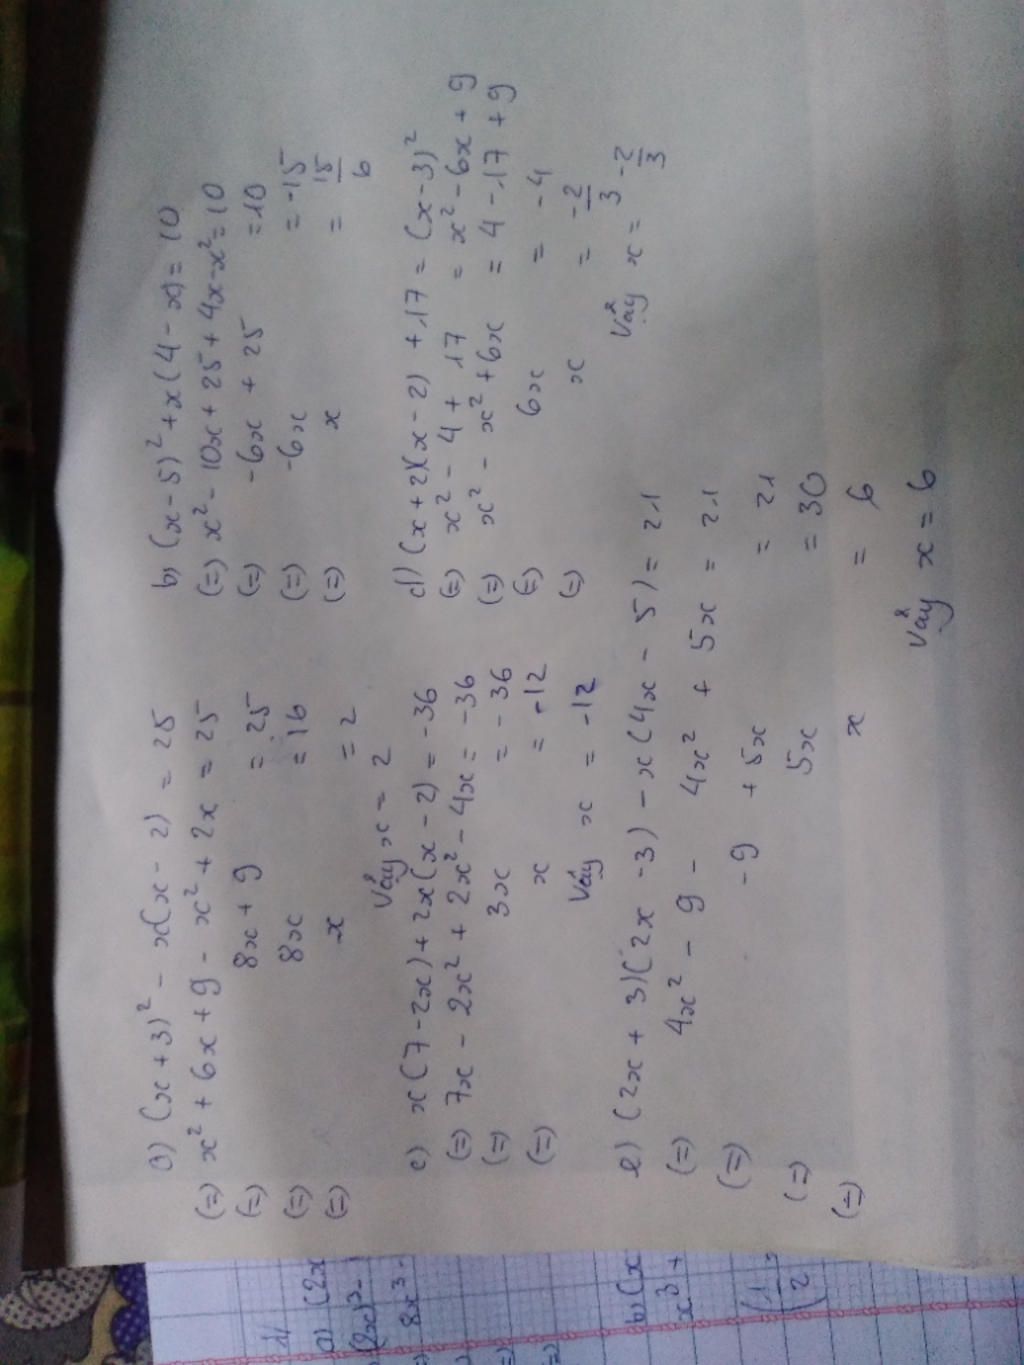 a) (x + 3)² - x(x - 2) = 25
(=) x² + 6x + 9 - x² + 2x = 25
(=) 8x + 9 = 25
(=) 8x = 16
(=) x = 2
Vậy x = 2
b) (x - 5)² + x(4 - x) = 10
(=) x² - 10x + 25 + 4x - x² = 10
(=) -6x + 25 = 10
(=) -6x = -15
(=) x = 15/6
c) x(7 - 2x) + 2x(x - 2) = -36
(=) 7x - 2x² + 2x² - 4x = -36
(=) 3x = -36
(=) x = -12
Vậy x = -12
d) (x + 2)(x - 2) + 17 = (x - 3)²
(=) x² - 4 + 17 = x² - 6x + 9
(=) x² - x² + 6x = 4 - 17 + 9
(=) 6x = -4
(=) x = -2/3
Vậy x = -2/3
e) (2x + 3)(2x - 3) - x(4x - 5) = 21
(=) 4x² - 9 - 4x² + 5x = 21
(=) -9 + 5x = 21
(=) 5x = 30
(=) x = 6
Vậy x = 6
1/
a) (2x
(2x)³ -
8x³ -
b) (x
x³ +
(1/2